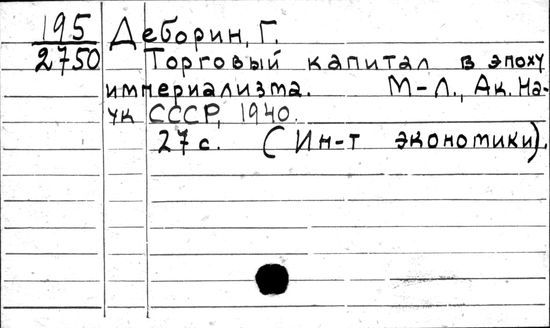 195 Деборин, Г.
2750 Торговый капитал в эпоху
империализма. М-Л., Ак. На-
ук СССР, 1940.
27 с. (Ин-т экономики).